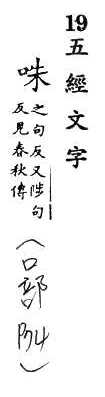 19五經文字
咮
之句反又陟句
反見春秋傳
(口部 P34)